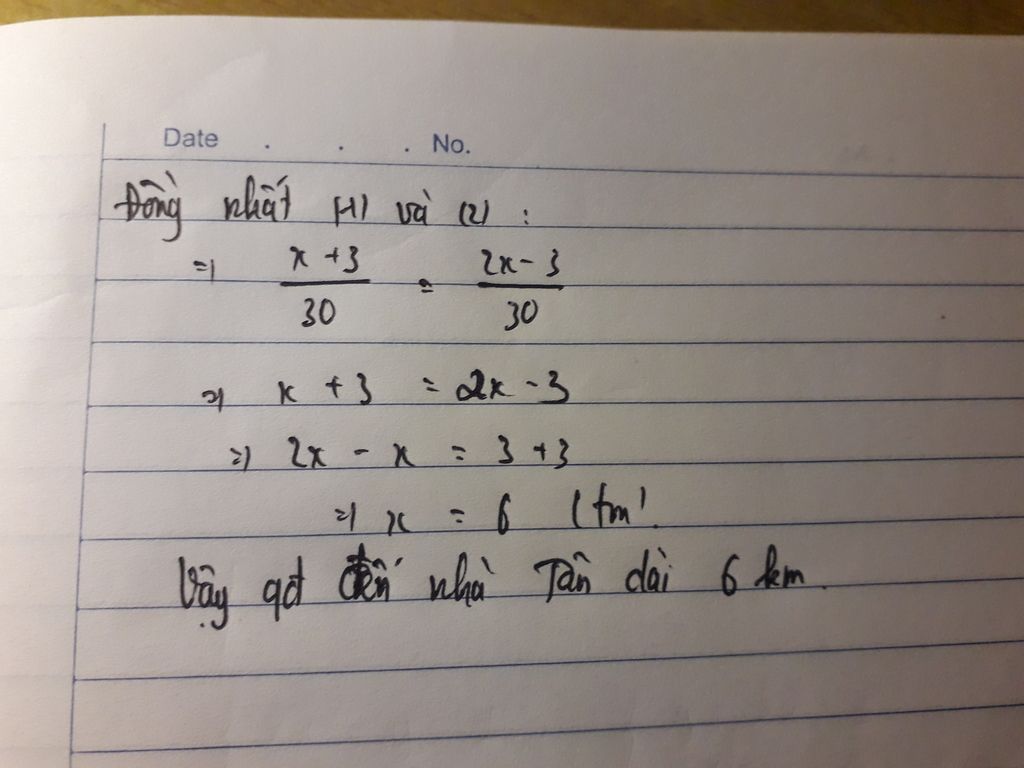 Date . . . No.
Đồng nhất (1) và (2) :
=> x + 3 / 30 = 2x - 3 / 30
=> x + 3 = 2x - 3
=> 2x - x = 3 + 3
=> x = 6 (tm).
Vậy qđ đến nhà Tân dài 6 km.